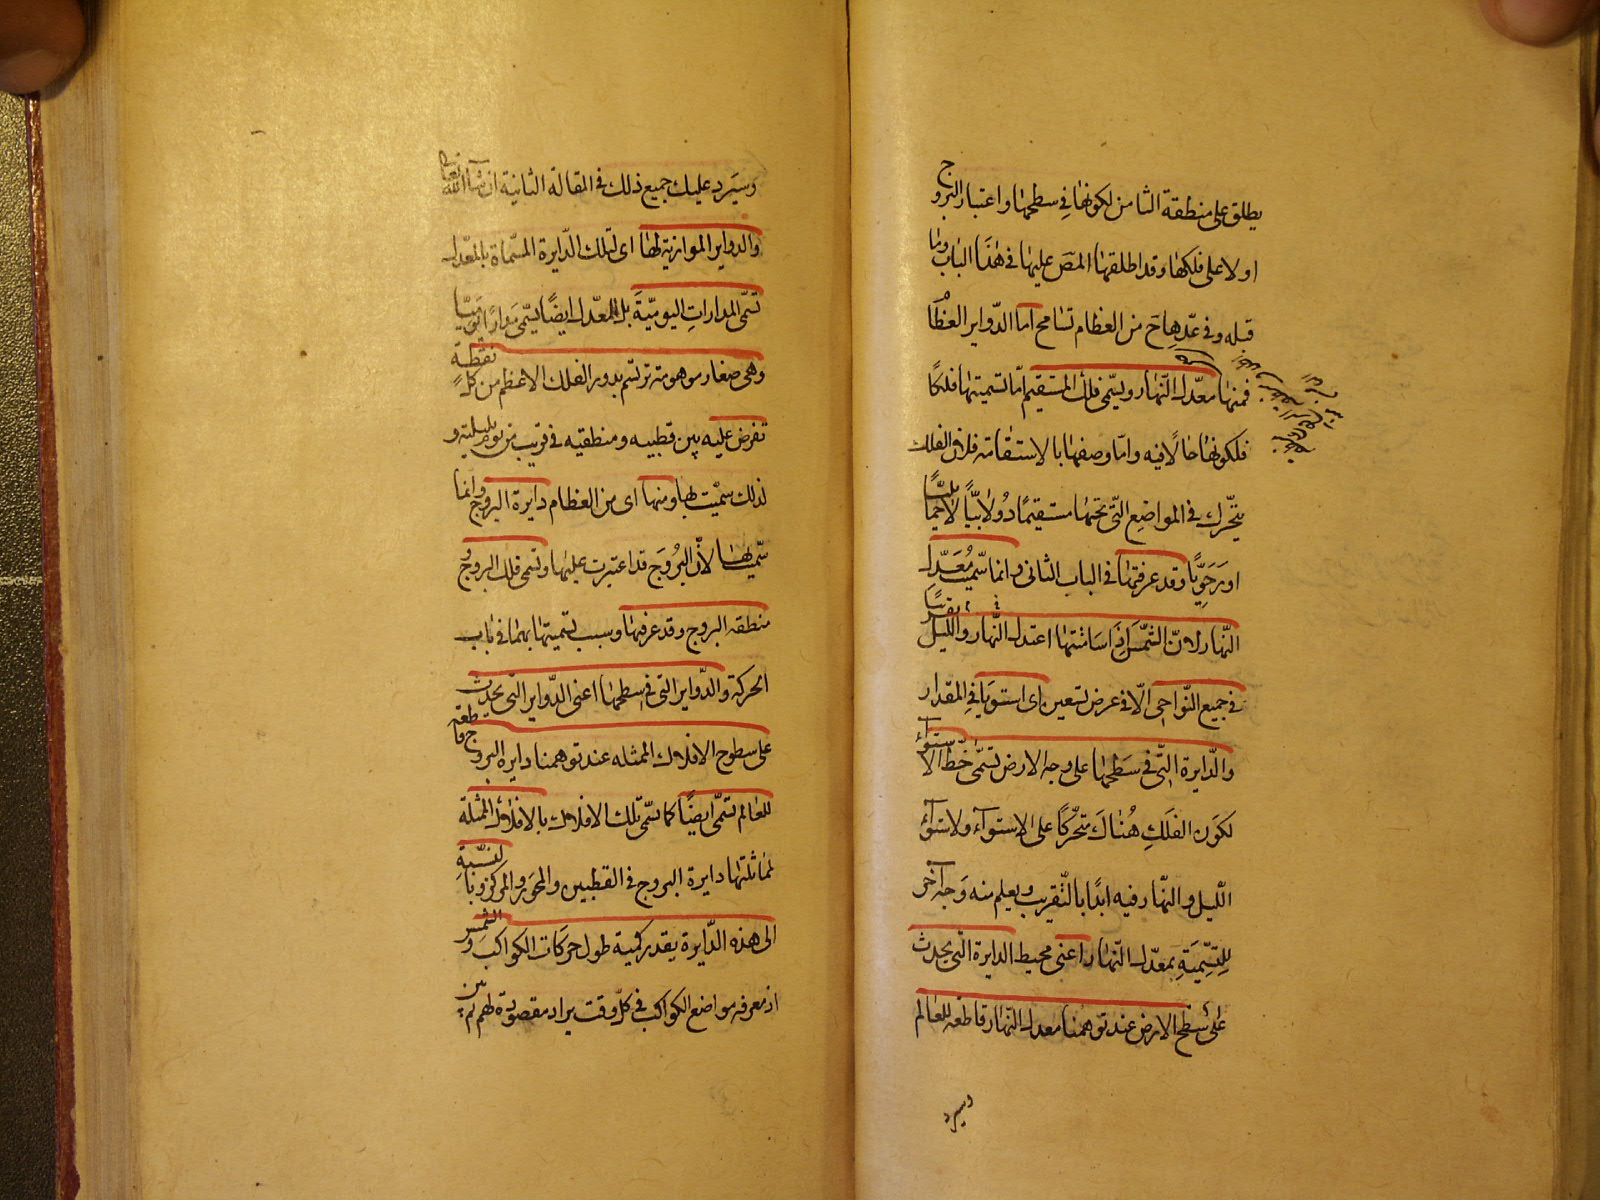 يطلق على منطقة الثامن لكونها في سطحها واعتبار البروج
اولا على فلكها وقد اطلقها المص عليها في هذا الباب وما
قبله وفي عدهاح من العظام تسامح اما الدواير العظام
فمنها معدل النهار ويسمى فلك المستقيم اما تسميتها فلكا
فلكونها حالا فيه واما وصفها بالاستقامة فلان الفلك
يتحرك في المواضع التي تحتها مستقيما دولابيا لا حمايليا
او رحويا وقد عرفتها في الباب الثاني وانما سميت معدل
النهار لان الشمس اذا سامتتها اعتدل النهار والليل تقريبا
في جميع النواحي الا في عرض تسعين اى استويا في المقدار
والدايرة التي في سطحها على وجه الارض تسمى خط الاستواء
لكون الفلك هناك متحركا على الاستوآء ولاستوآء
الليل والنهار فيه ابدا بالتقريب ويعلم منه وجه آخر
للتسمية بمعدل النهار اعنى محيط الدايرة التى يحدث
على سطح الارض عند توهمنا معدل النهار قاطعه للعالم
وسيرد
وسيرد عليك جميع ذلك في المقالة الثانية ان شاالله تعالى
والدواير الموازية لها اى لتلك الدايرة المسماة بالمعدل
تسمى المدارات اليومية بل المعدل ايضا يسمى مدارا يوميا
وهى صغار موهومة ترتسم بدور الفلك الاعظم من كل نقطة
تفرض عليه بين قطبيه ومنطقيه في قريب من يوم بليلته و
لذلك سميت بها ومنها اى من العظام دايرة البروج وانما
سميت بها لان البروج قد اعتبرت عليها وتسمى فلك البروج و
منطقه البروج وقد عرفتها وسبب تسميتها بهما في باب
الحركة والدواير التى في سطحها اعنى الدواير التى يحدث
على سطوح الافلاك الممثله عند توهمنا دايرة البروج قاطعة
للعالم تسمى ايضا كما تسمى تلك الافلاك بالافلاك الممثلة
لمماثلتها دايرة البروج في القطبين والمحور والمركز وبالنسبة
الى هذه الدايرة يقدر كمية طول حركات الكواكب والشمس
اذ معرفه مواضع الكواكب في كل وقت يراد مقصودة لهم ثم من